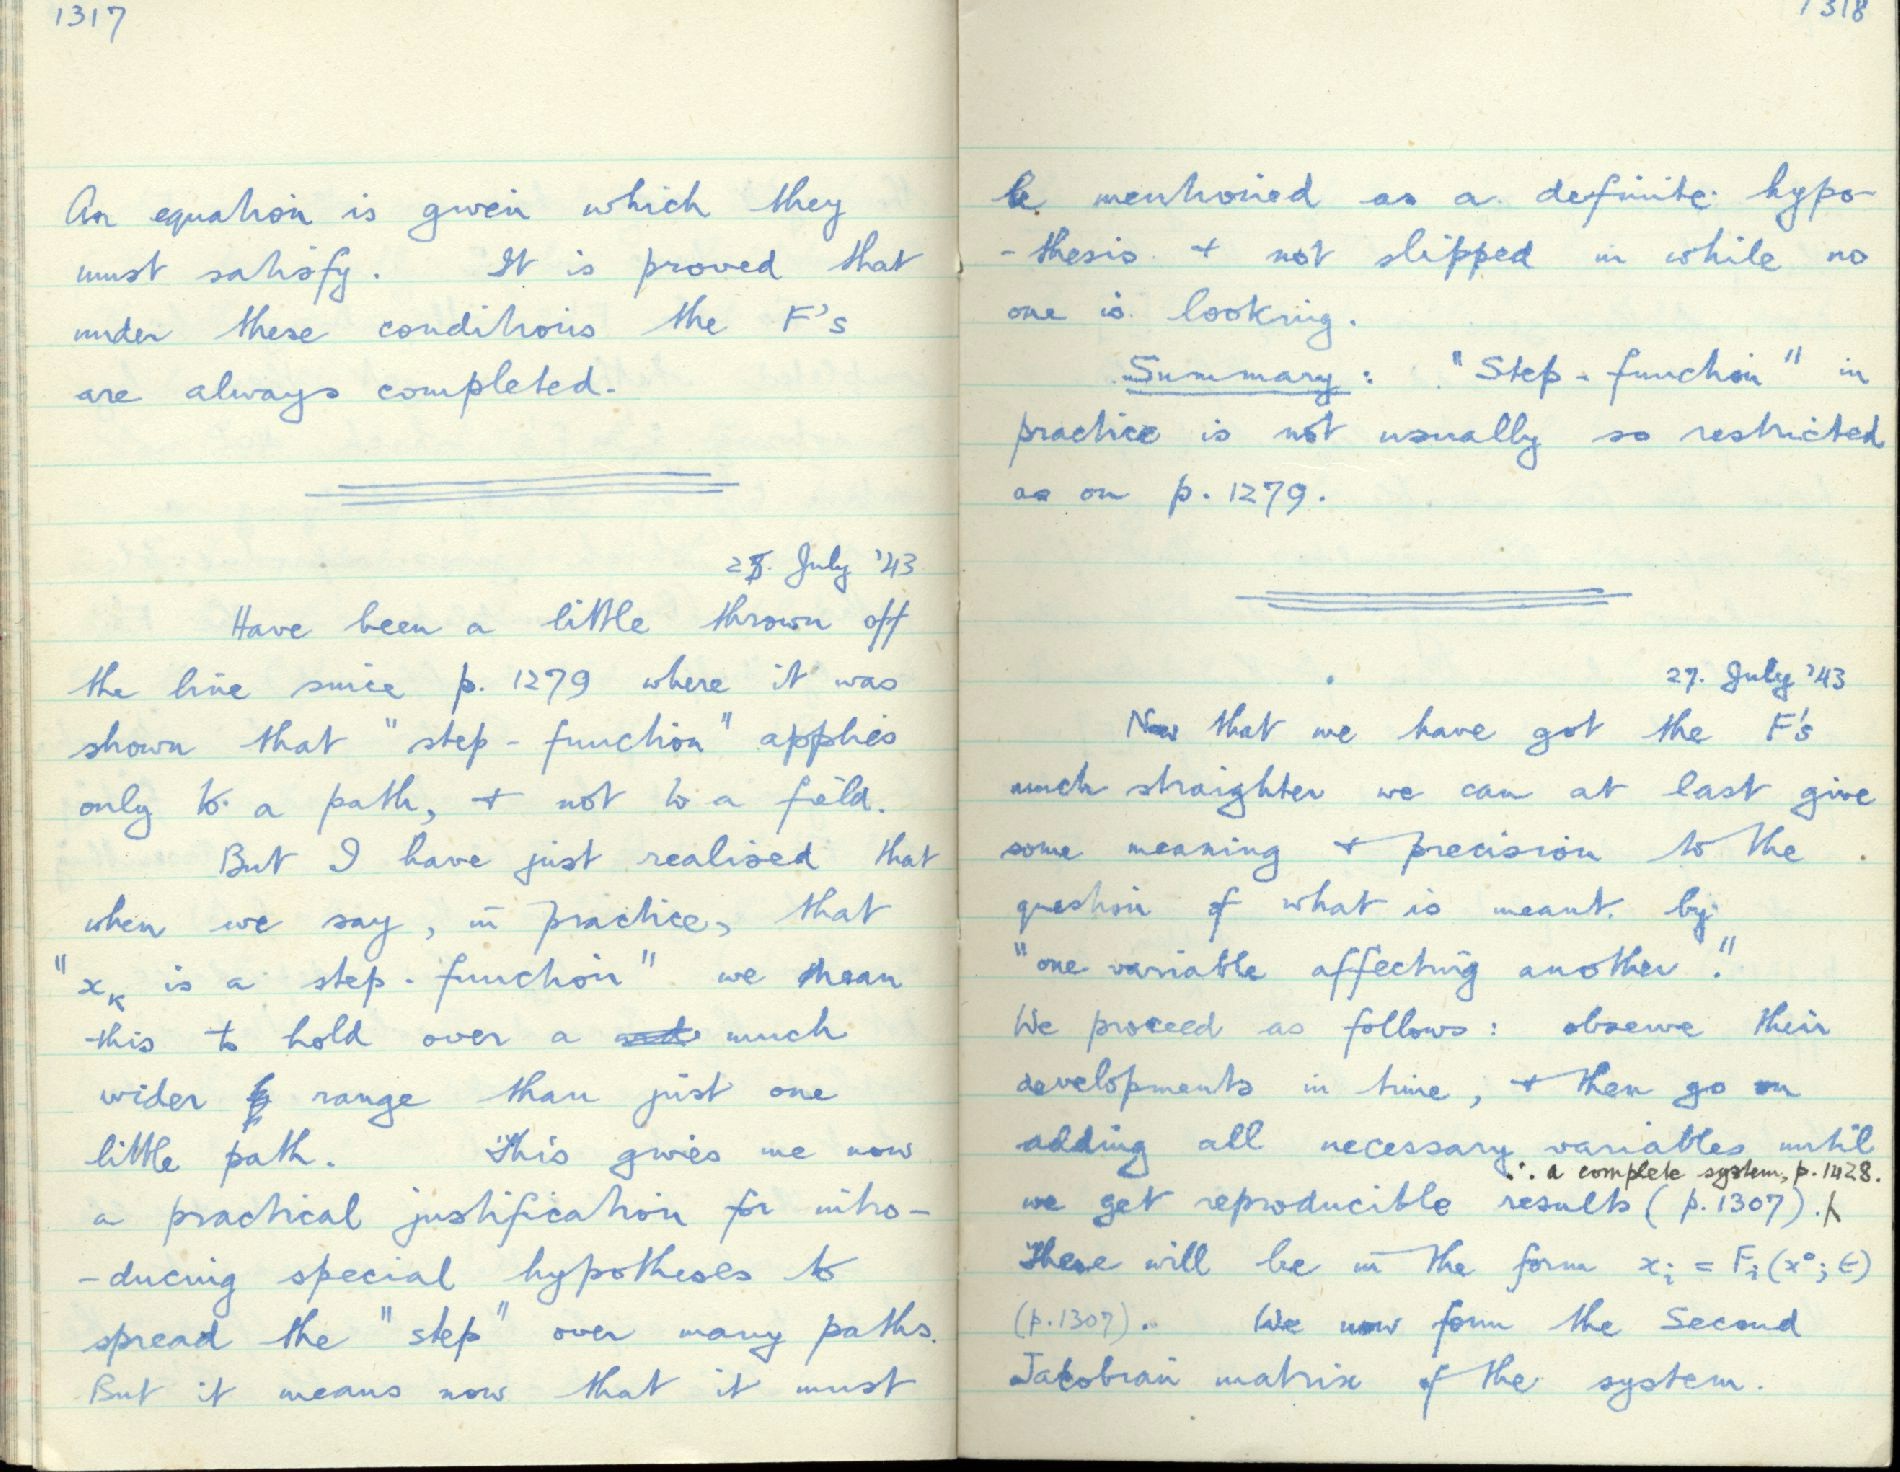 1317
An equation is given which they
must satisfy. It is proved that
under these conditions the F's
are always completed.
July '43
Have been a little thrown off
the line since p. 1279 where it was
shown that "step-function" applies
only to a path, + not to a field.
But I have just realised that
when we say, in practice, that
"xₖ is a step-function" we mean
this to hold over a much
wider range than just one
little path. This gives me now
a practical justification for intro-
-ducing special hypotheses to
spread the "step" over many paths.
But it means now that it must
1318
be mentioned as a definite hypo-
-thesis + not slipped in while no
one is looking.
Summary: "Step-function" in
practice is not usually so restricted
as on p. 1279.
27. July '43
Now that we have got the F's
much straighter we can at last give
some meaning + precision to the
question of what is meant by
"one variable affecting another".
We proceed as follows: observe their
developments in time, + then go on
adding all necessary variables until
∴ a complete system, p. 1428.
we get reproducible results (p. 1307).
These will be in the form xᵢ = Fᵢ(x°; t)
(p. 1307). We now form the Second
Jacobian matrix of the system.